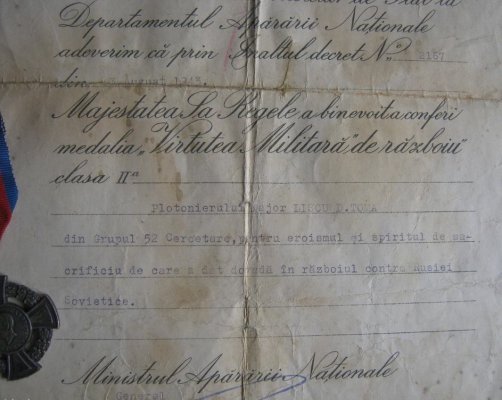 Departamentul Apărării Naționale
adeverim că prin Înaltul decret No. 2167
din August 1943
Majestatea Sa Regele a binevoit a conferi
medalia „Virtutea Militară" de războiu"
clasa IIa
Plotonierului major LISCU D.TOMA
din Grupul 52 Cercetare, pentru eroismul și spiritul de sa-
crificiu de care a dat dovadă în războiul contra Rusiei
Sovietice.
Ministrul Apărării Naționale
General